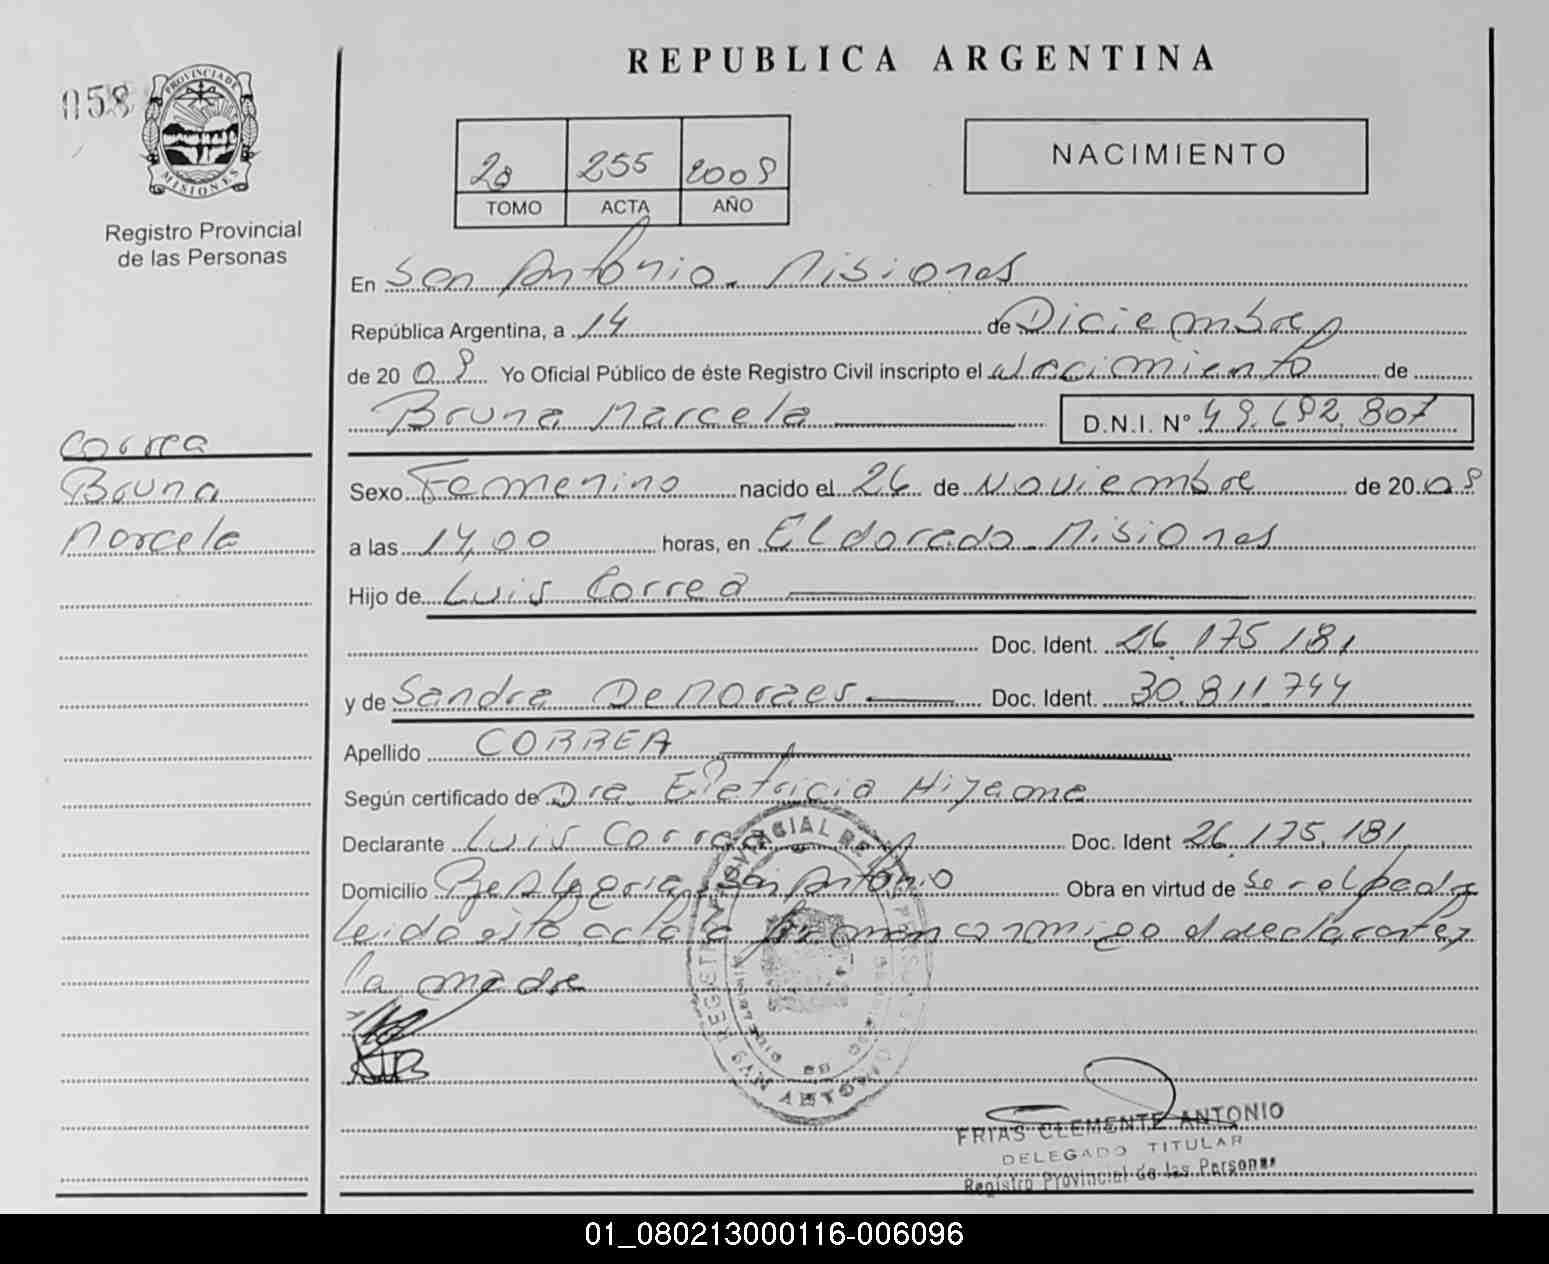 REPUBLICA ARGENTINA
058
PROVINCIA DE
MISIONES
Registro Provincial
de las Personas
255 2009
TOMO ACTA AÑO
NACIMIENTO
En San Antonio - Misiones
República Argentina, a 14 de Diciembre
de 20 09 Yo Oficial Público de éste Registro Civil inscripto el Nacimiento de
Bruna Marcela D.N.I. Nº 49.692.807
Correa
Bruna
Marcela
Sexo Femenino nacido el 26 de Noviembre de 20 09
a las 14,00 horas, en Eldorado - Misiones
Hijo de Luis Correa
Doc. Ident. 26.175.181
y de Sandra De Moraes Doc. Ident. 30.811.744
Apellido CORREA
Según certificado de Dra.
Declarante Luis Correa Doc. Ident 26.175.181
Domicilio San Antonio Obra en virtud de ser el padre
leida esta acta la firman conmigo el declarante y
la madre
REGISTRO PROVINCIAL DE LAS PERSONAS
SAN ANTONIO
FRIAS CLEMENTE ANTONIO
DELEGADO TITULAR
Registro Provincial de las Personas
01_080213000116-006096